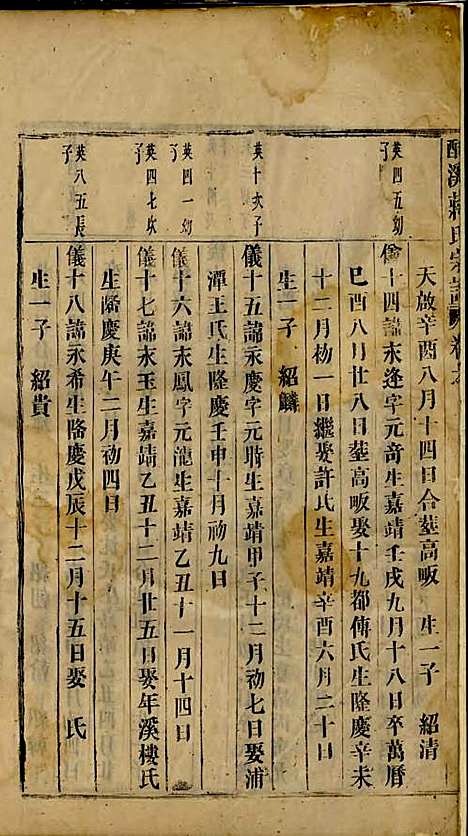 溪蔣氏宗譜 卷六
天啟辛酉八月十四日合塟高畈 生一子 紹清
英四五幼子
儀十四諱永逢字元音生嘉靖壬戌九月十八日卒萬曆
巳酉八月廿八日塟高畈娶十九都傅氏生隆慶辛未
十二月初一日繼娶許氏生嘉靖辛酉六月二十日
生一子 紹麟
英十次子
儀十五諱永慶字元時生嘉靖甲子十二月初七日娶浦
潭王氏生隆慶壬申十月初九日
英四一幼子
儀十六諱永鳳字元龍生嘉靖乙丑十一月十四日
英四七次子
儀十七諱永玉生嘉靖乙丑十二月廿五日娶年溪樓氏
生隆慶庚午二月初四日
英八五長子
儀十八諱永希生隆慶戊辰十二月十五日娶 氏
生一子 紹貴